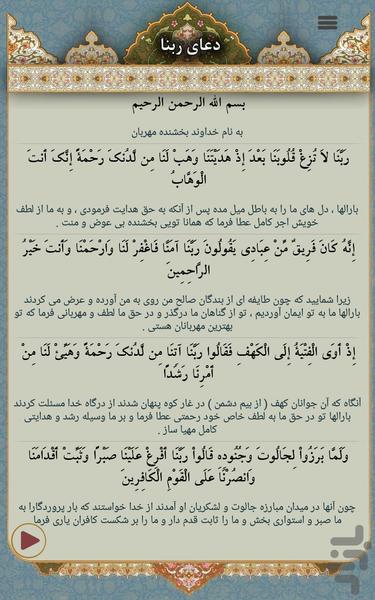 دعای ربنا
بسم الله الرحمن الرحیم
به نام خداوند بخشنده مهربان
رَبَّنَا لاَ تُزِغْ قُلُوبَنَا بَعْدَ إِذْ هَدَيْتَنَا وَهَبْ لَنَا مِن لَّدُنكَ رَحْمَةً إِنَّكَ أَنتَ
الْوَهَّابُ
بارالها ، دل های ما را به باطل میل مده پس از آنکه به حق هدایت فرمودی ، و به ما از لطف
خویش اجر کامل عطا فرما که همانا تویی بخشنده بی عوض و منت .
إِنَّهُ كَانَ فَرِيقٌ مِّنْ عِبَادِي يَقُولُونَ رَبَّنَا آمَنَّا فَاغْفِرْ لَنَا وَارْحَمْنَا وَأَنتَ خَيْرُ
الرَّاحِمِينَ
زیرا شمایید که چون طایفه ای از بندگان صالح من روی به من آورده و عرض می کردند
بارالها ما به تو ایمان آوردیم ، تو از گناهان ما درگذر و در حق ما لطف و مهربانی فرما که تو
بهترین مهربانان هستی .
إِذْ أَوَى الْفِتْيَةُ إِلَى الْكَهْفِ فَقَالُوا رَبَّنَا آتِنَا مِن لَّدُنكَ رَحْمَةً وَهَيِّئْ لَنَا مِنْ
أَمْرِنَا رَشَدًا
آنگاه که آن جوانان کهف ( از بیم دشمن ) در غار کوه پنهان شدند از درگاه خدا مسئلت کردند
بارالها تو در حق ما به لطف خاص خود رحمتی عطا فرما و بر ما وسیله رشد و هدایتی
کامل مهیا ساز .
وَلَمَّا بَرَزُواْ لِجَالُوتَ وَجُنُودِهِ قَالُواْ رَبَّنَا أَفْرِغْ عَلَيْنَا صَبْرًا وَثَبِّتْ أَقْدَامَنَا
وَانصُرْنَا عَلَى الْقَوْمِ الْكَافِرِينَ
چون آنها در میدان مبارزه جالوت و لشکریان او آمدند از خدا خواستند که بار پروردگارا به
ما صبر و استواری بخش و ما را ثابت قدم دار و ما را بر شکست کافران یاری فرما
بازار